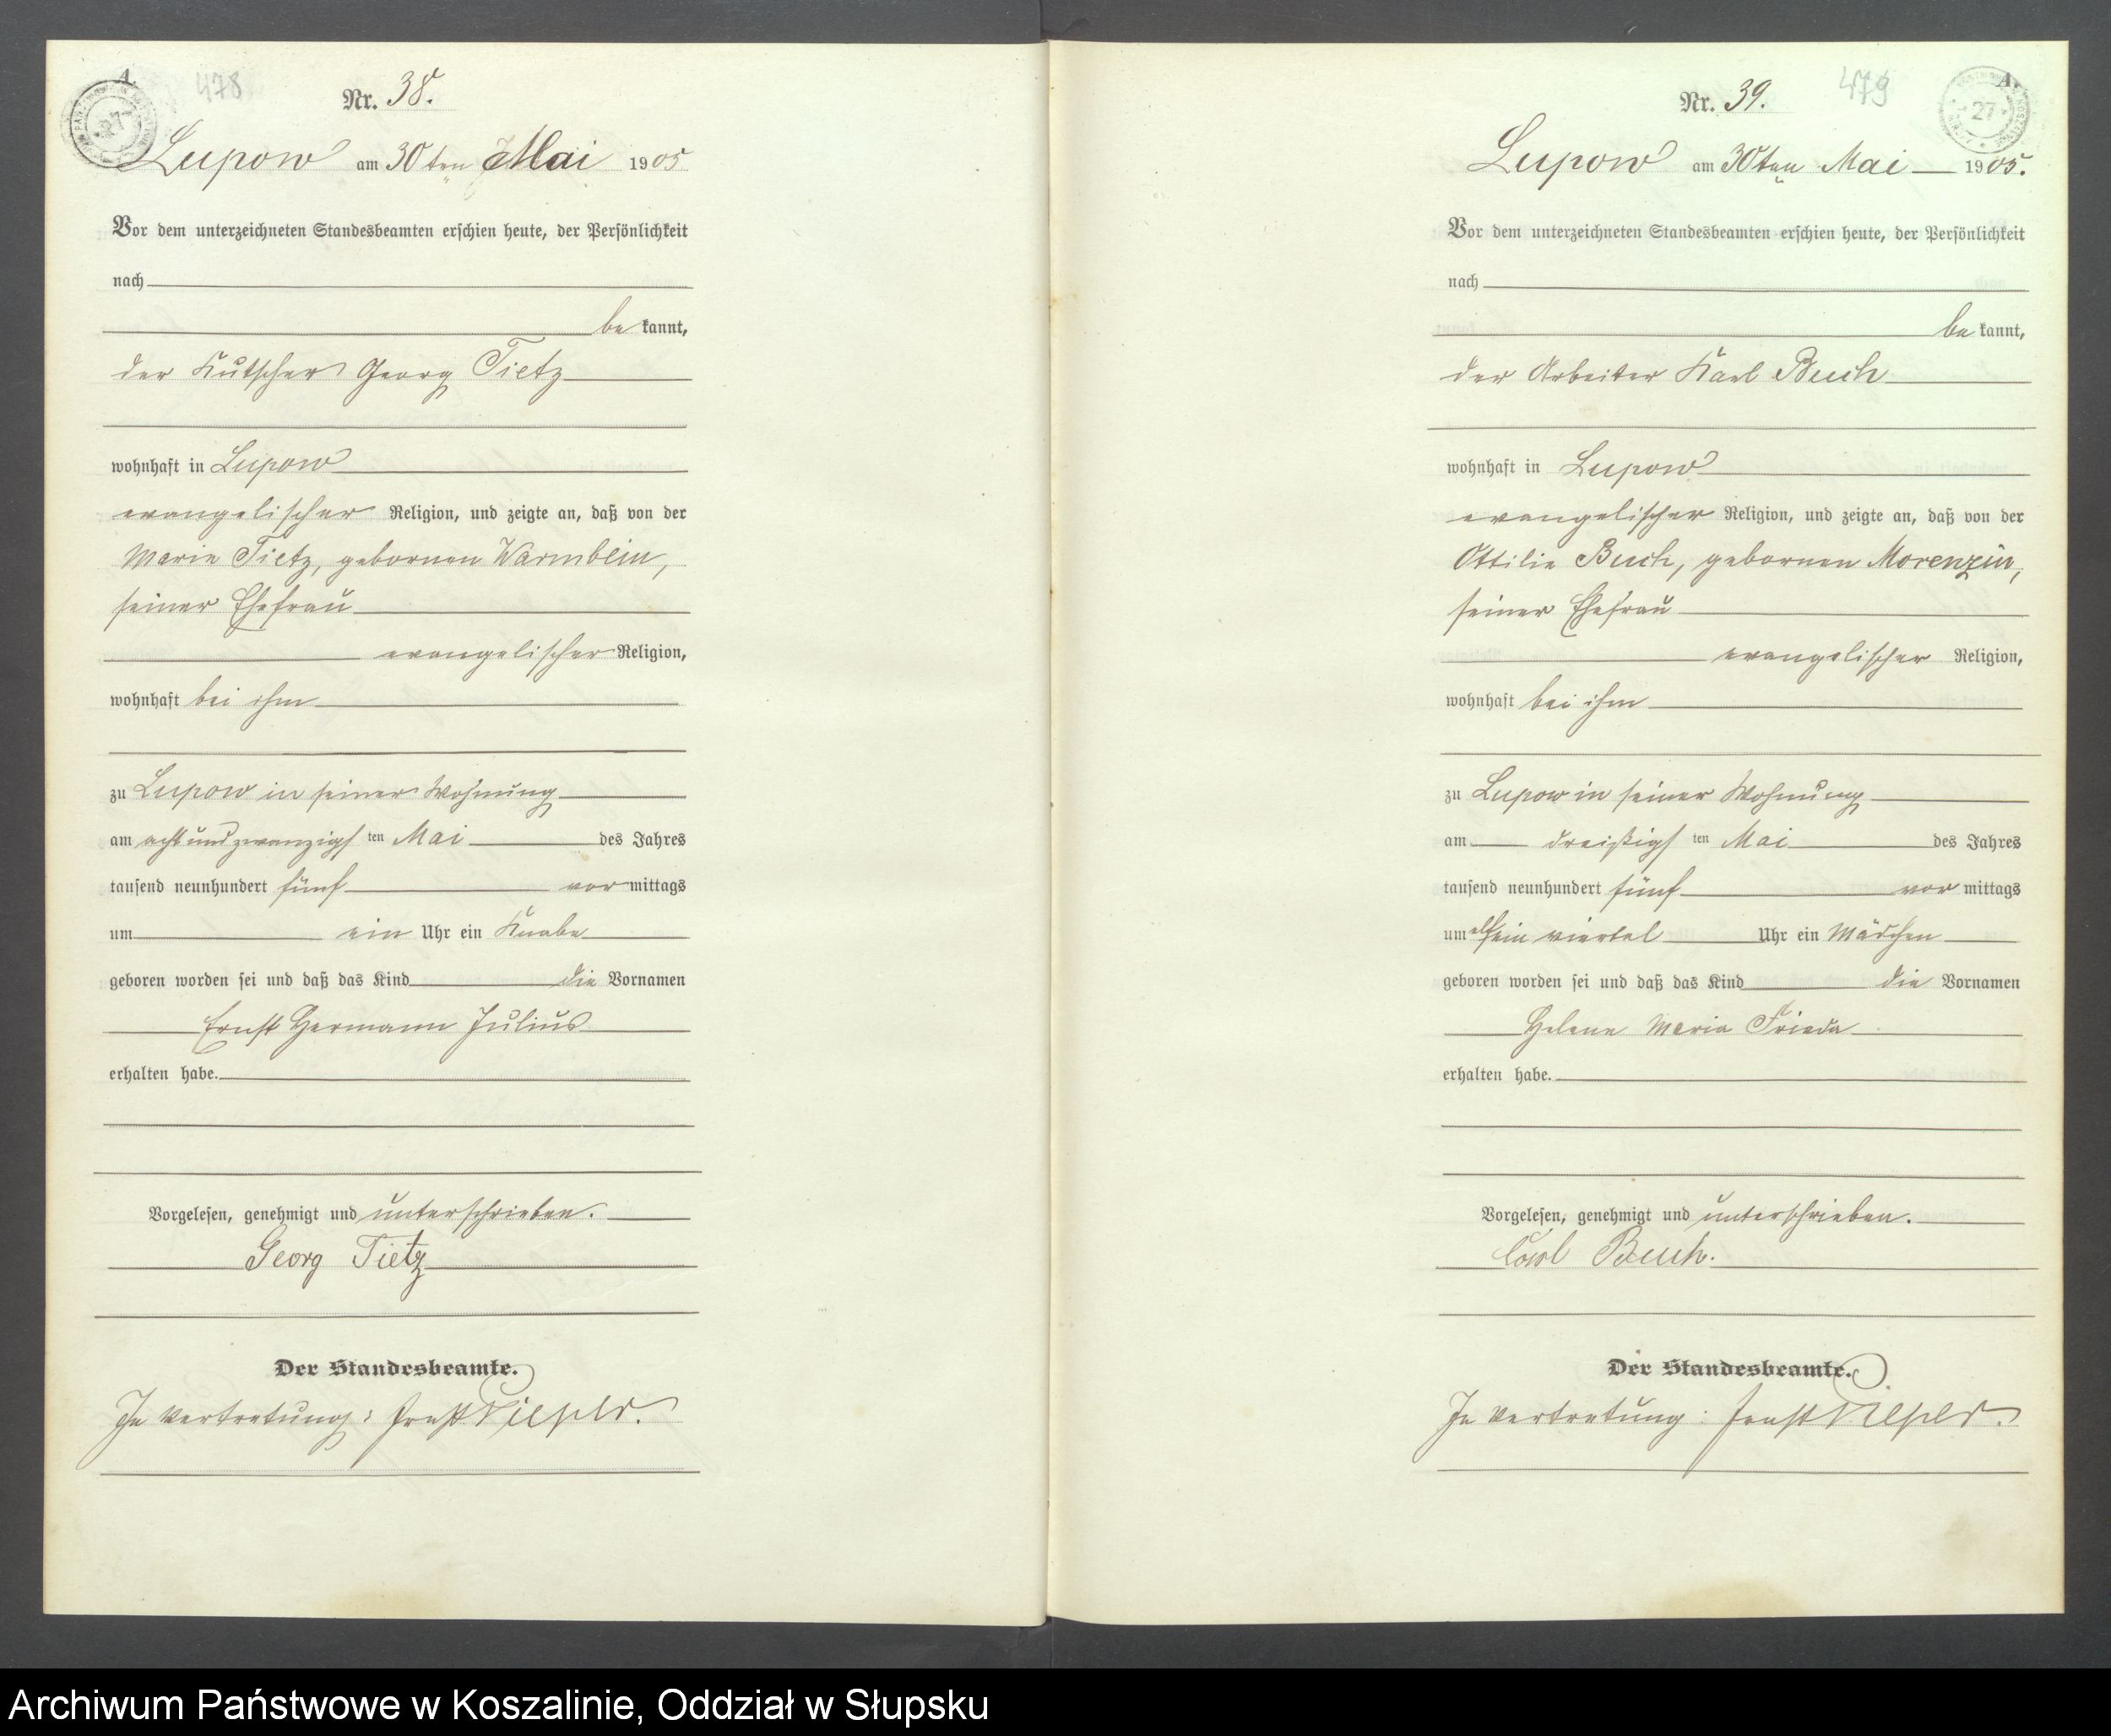 A.
478
27
Nr. 38.
Lupow am 30ten Mai 1905
Vor dem unterzeichneten Standesbeamten erschien heute, der Persönlichkeit
nach
be kannt,
der Kutscher Georg Tietz
wohnhaft in Lupow
evangelischer Religion, und zeigte an, daß von der
Marie Tietz, geborenen Warmbein,
seiner Ehefrau
evangelischer Religion,
wohnhaft bei ihm
zu Lupow in seiner Wohnung
am achtundzwanzigsten Mai des Jahres
tausend neunhundert fünf vormittags
um ein Uhr ein Knabe
geboren worden sei und daß das Kind die Vornamen
Ernst Hermann Julius
erhalten habe.
Vorgelesen, genehmigt und unterschrieben.
Georg Tietz
Der Standesbeamte.
In Vertretung: Ernst Pieper.
A.
479
27
Nr. 39.
Lupow am 30ten Mai 1905.
Vor dem unterzeichneten Standesbeamten erschien heute, der Persönlichkeit
nach
be kannt,
der Arbeiter Karl Buch
wohnhaft in Lupow
evangelischer Religion, und zeigte an, daß von der
Ottilie Buch, geborenen Morenzin,
seiner Ehefrau
evangelischer Religion,
wohnhaft bei ihm
zu Lupow in seiner Wohnung
am dreißigsten Mai des Jahres
tausend neunhundert fünf vormittags
um elf ein viertel Uhr ein Mädchen
geboren worden sei und daß das Kind die Vornamen
Helene Maria Frieda
erhalten habe.
Vorgelesen, genehmigt und unterschrieben.
Carl Buch.
Der Standesbeamte.
In Vertretung: Ernst Pieper.
Archiwum Państwowe w Koszalinie, Oddział w Słupsku